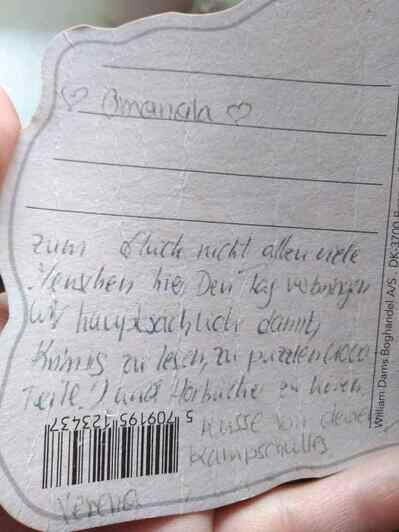 ♡ Omanala ♡
zum Glück nicht allzu viele
Menschen hier. Den Tag verbringen
wir hauptsächlich damit,
Krimis zu lesen, zu puzzlen (1000
Teile!) und Hörbücher zu hören.
Küsse von deinen
Kampschulles
Verena
5 709195 123437
William Dams Boghandel A/S DK-3700